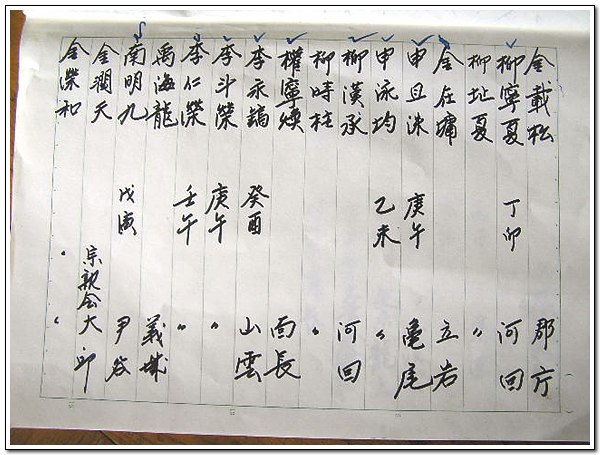 金載松 郡庁
柳寧夏 丁卯 河回
柳址夏 〃
金在墉 立岩
申旦洙 庚午 亀尾
申泳均 乙未 〃
柳漢承 河回
柳時柱 〃
權寧煥 面長
李永鎬 癸酉 山雲
李斗榮 庚午 〃
李仁榮 壬午 〃
禹海龍 義城
南明九 戊寅 尹谷
金潤天 宗親会大邱
金濚和 〃